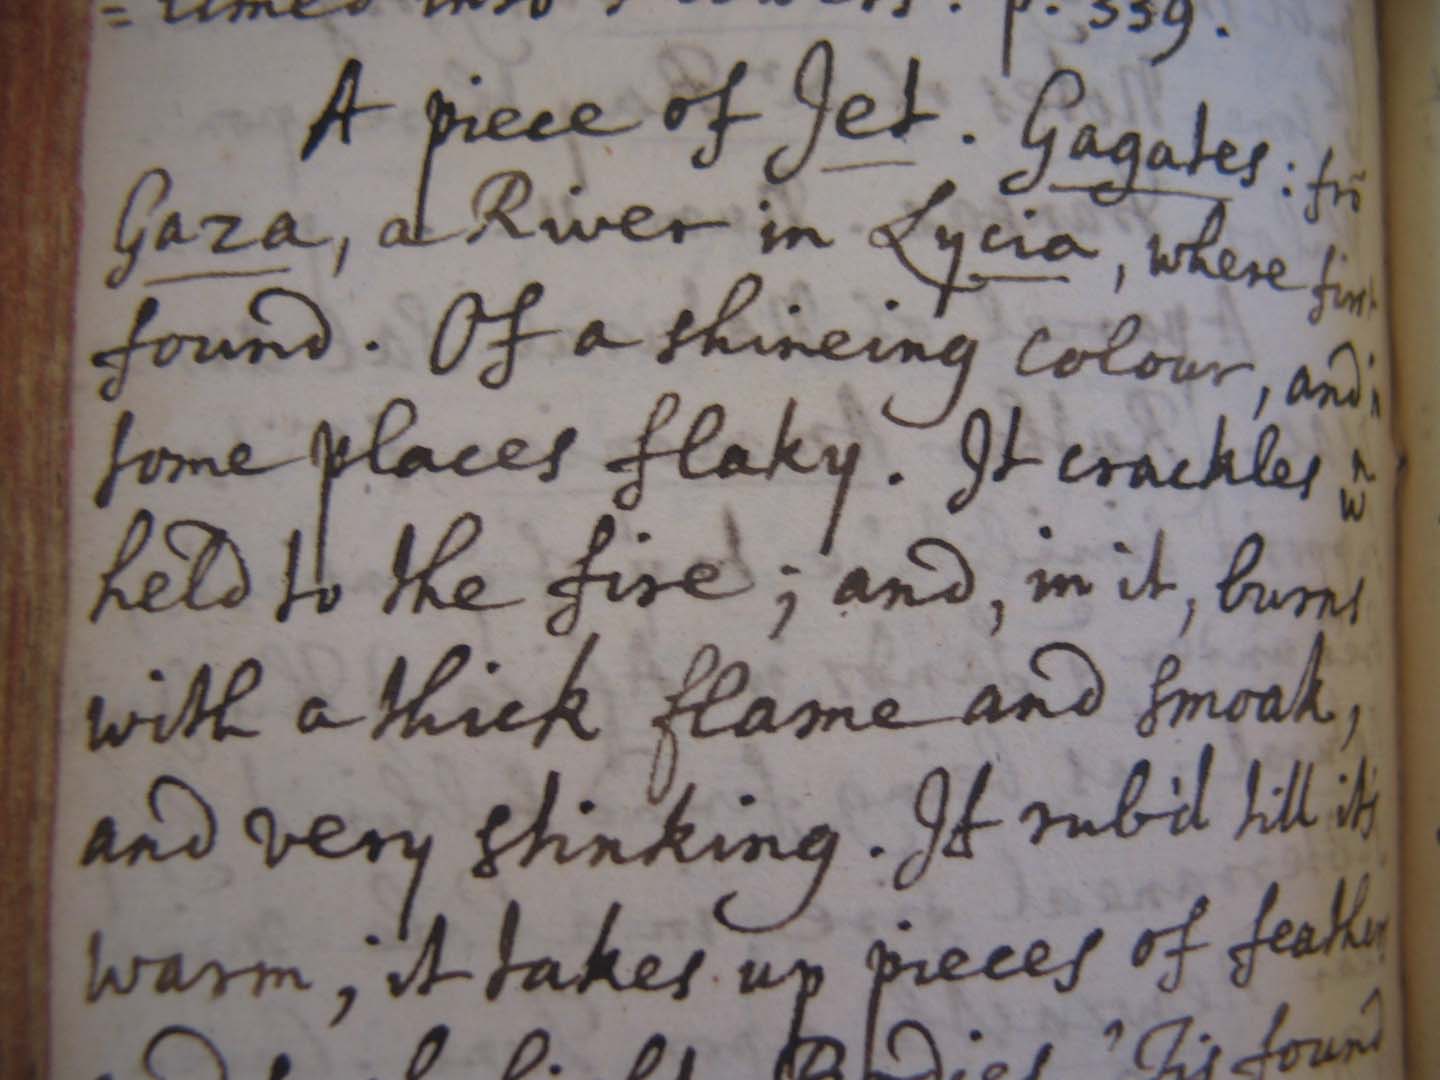 = rimed into Flowers. p. 339.
A piece of Jet. Gagates: frõ
Gaza, a River in Lycia, where first
found. Of a shineing colour, and in
some places flaky. It crackles wn
held to the fire; and, in it, burns
with a thick flame and smoak,
and very stinking. If rub'd till its
warm, it takes up pieces of feathers
and such light Bodies. 'Tis found